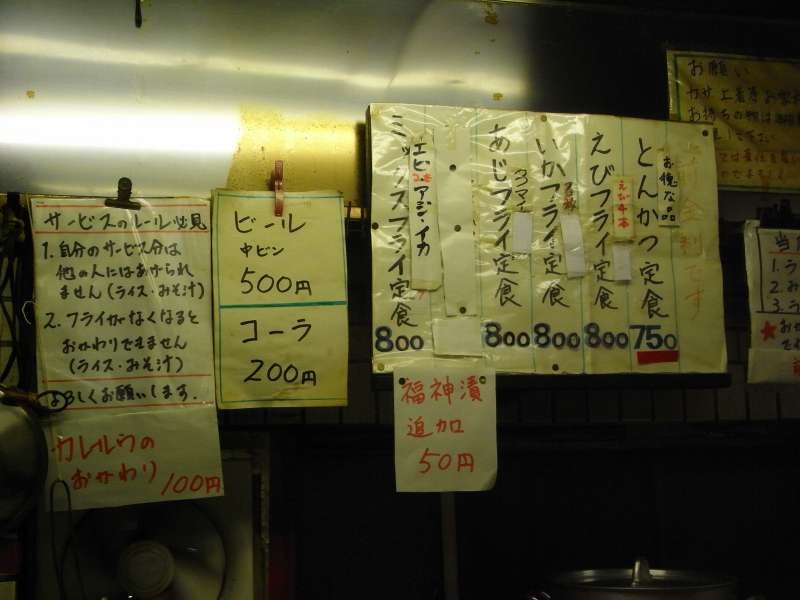 サービスのルール必見
1. 自分のサービス分は
他の人にはあげられ
ません(ライス・みそ汁)
2. フライがなくなると
おかわりできません
(ライス・みそ汁)
よろしくお願いします.
カレールウの
おかわり
100円
ビール
中ビン
500円
コーラ
200円
お得な品
とんかつ定食
750
えび4本
えびフライ定食
800
いかフライ定食
800
3マイ
あじフライ定食
800
エビ アジ・イカ
ミックスフライ定食
800
福神漬
追加
50円
お願い
当
1. ラ
2. み
3. ラ
★